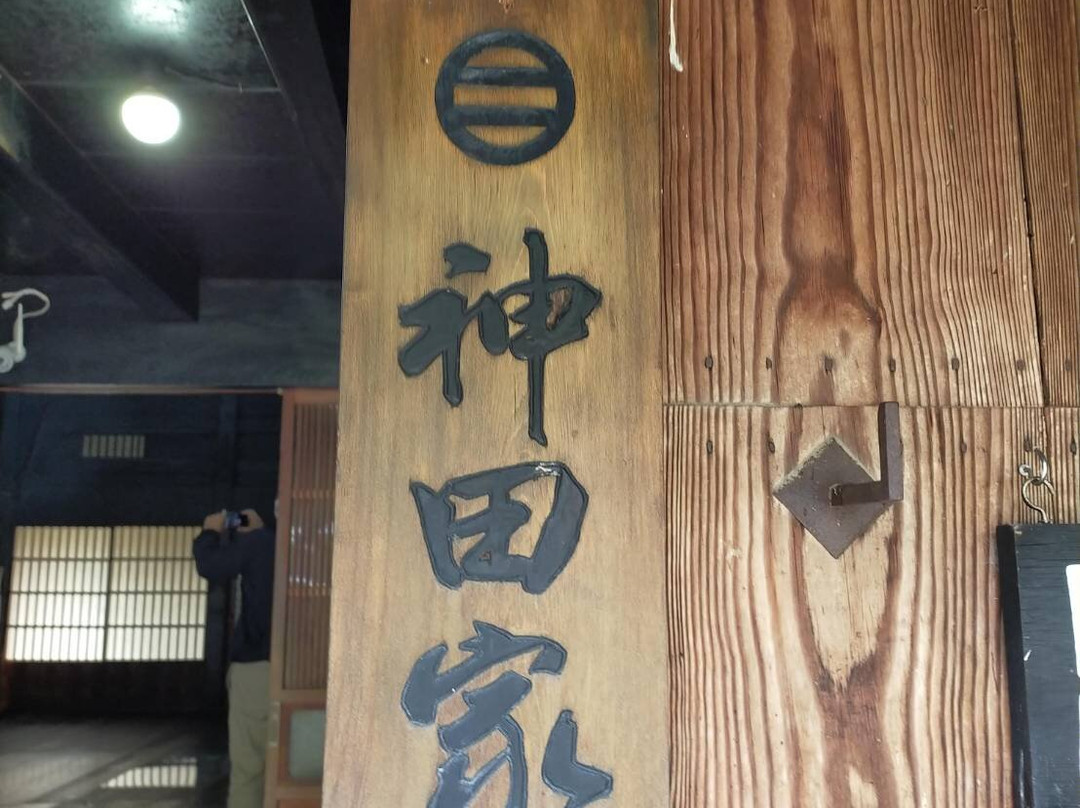 神田家